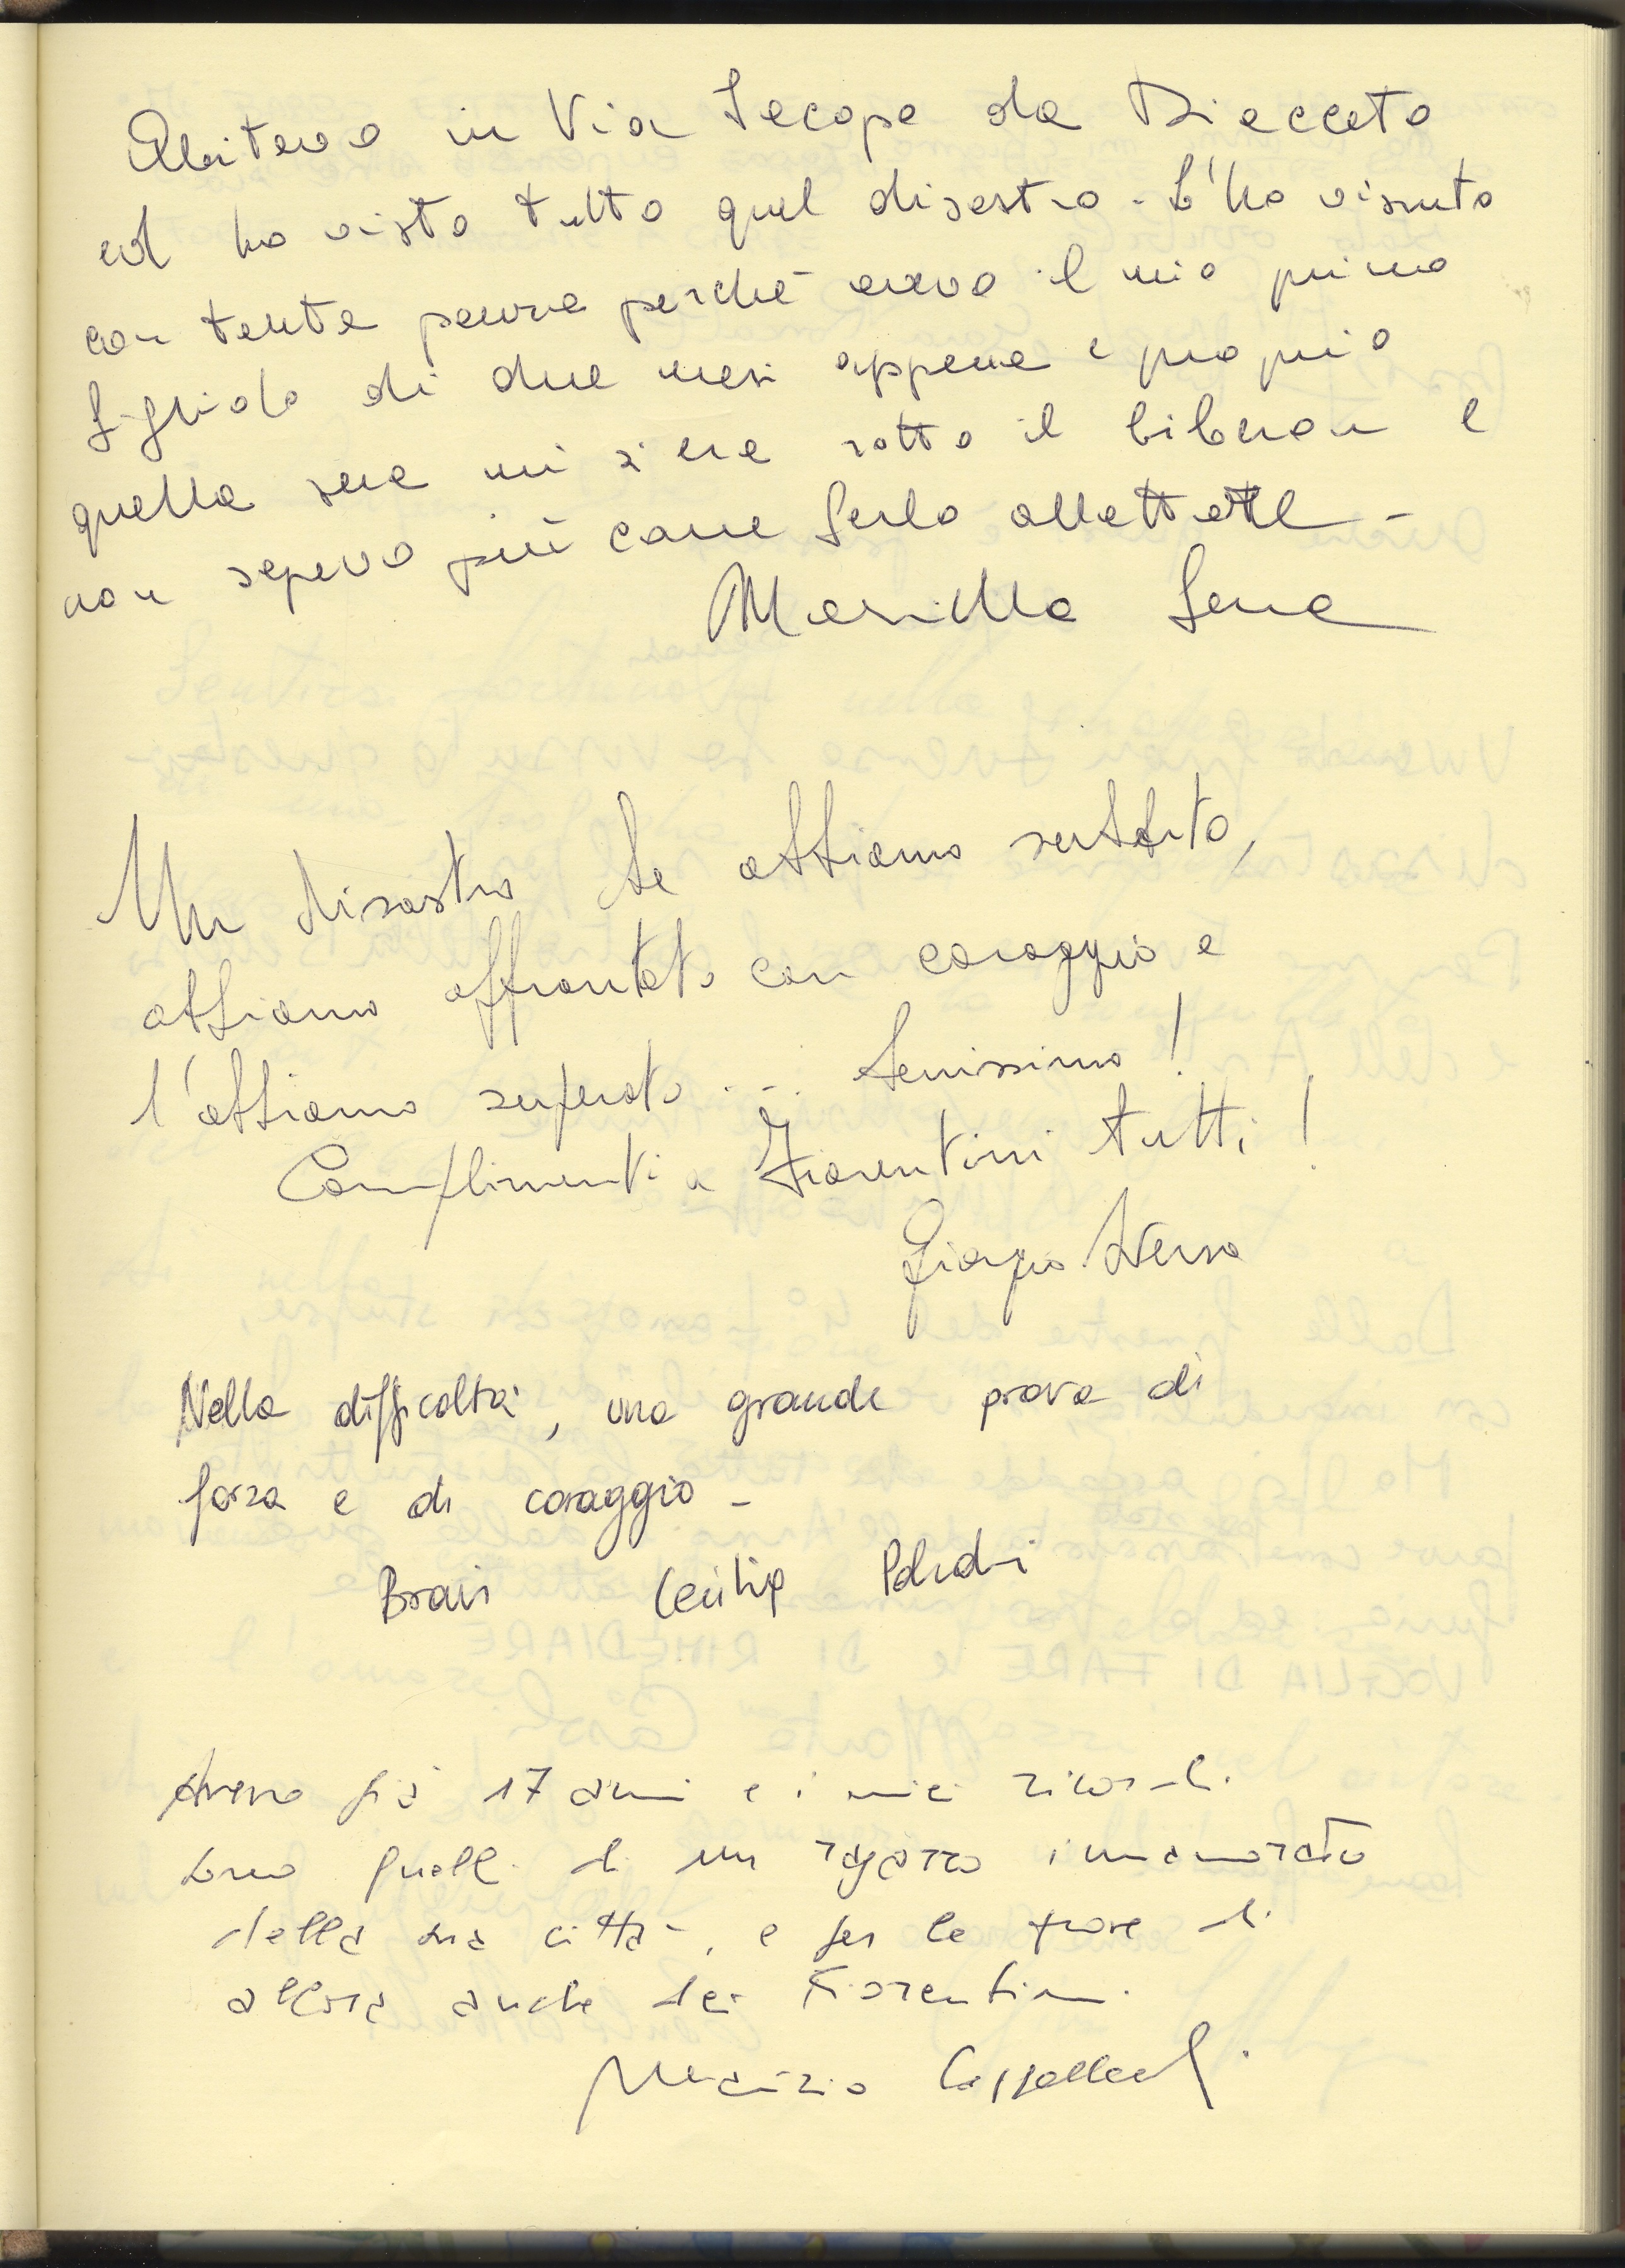 Abitavo in Via Jacopo da Diacceto
ed ho visto tutto quel disastro. L'ho vissuto
con tanta paura perchè avevo il mio primo
figliolo di due mesi appena e proprio
quella sera mi s'era rotto il biberon e
non sapevo più come farlo allattare -
Marilla
Un disastro
abbiamo affrontato con coraggio e
l'abbiamo superato ... benissimo!
Complimenti a Fiorentini tutti!
Giorgio
Nella difficoltà, una grande prova di
forza e di coraggio -
Avevo già 17 anni e i miei ricordi
sono quelli di un ragazzo innamorato
della sua città, e per le prove di
allora anche dei Fiorentini.
Maurizio